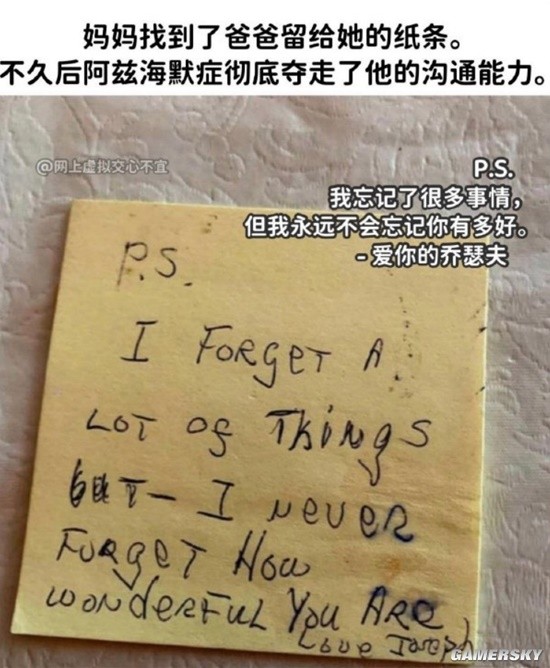 妈妈找到了爸爸留给她的纸条。
不久后阿兹海默症彻底夺走了他的沟通能力。
@网上虚拟交心不宜
P.S.
我忘记了很多事情，
但我永远不会忘记你有多好。
- 爱你的乔瑟夫
P.S.
I FORgeT A
LOT OF THiNgS
buT- I NeveR
FoRgeT How
woNdeRFuL You ARe
Love Joseph
GAMERSKY